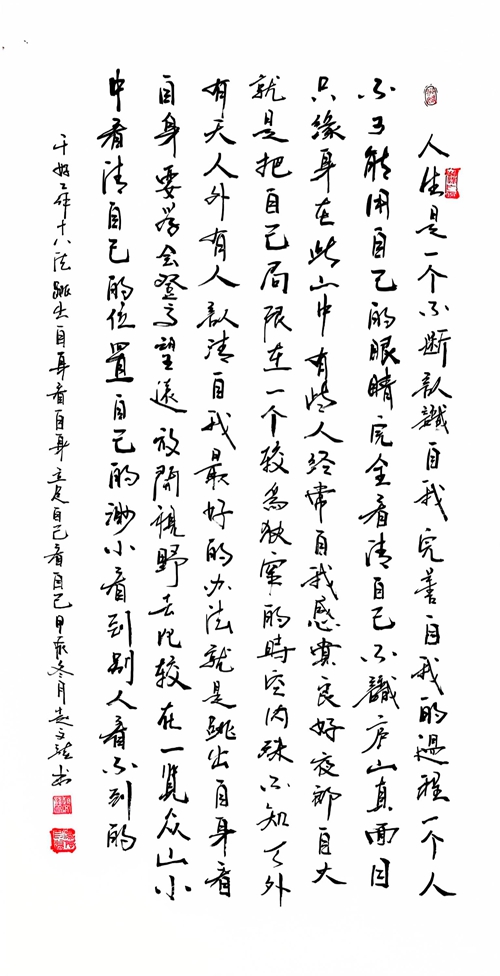 人生是一个不断认識自我完善自我的過程一个人
不可能用自己的眼睛完全看清自己不識庐山真面目
只緣身在此山中有些人经常自我感覺良好夜郎自大
就是把自己局限在一个较為狭窄的時空内殊不知天外
有天人外有人认清自我最好的办法就是跳出自身看
自身要学会登高望遠放開視野去比较在一覽众山小
中看清自己的位置自己的渺小看到别人看不到的
干好工作十八法跳出自身看自身立足自己看自己甲辰冬月赵文